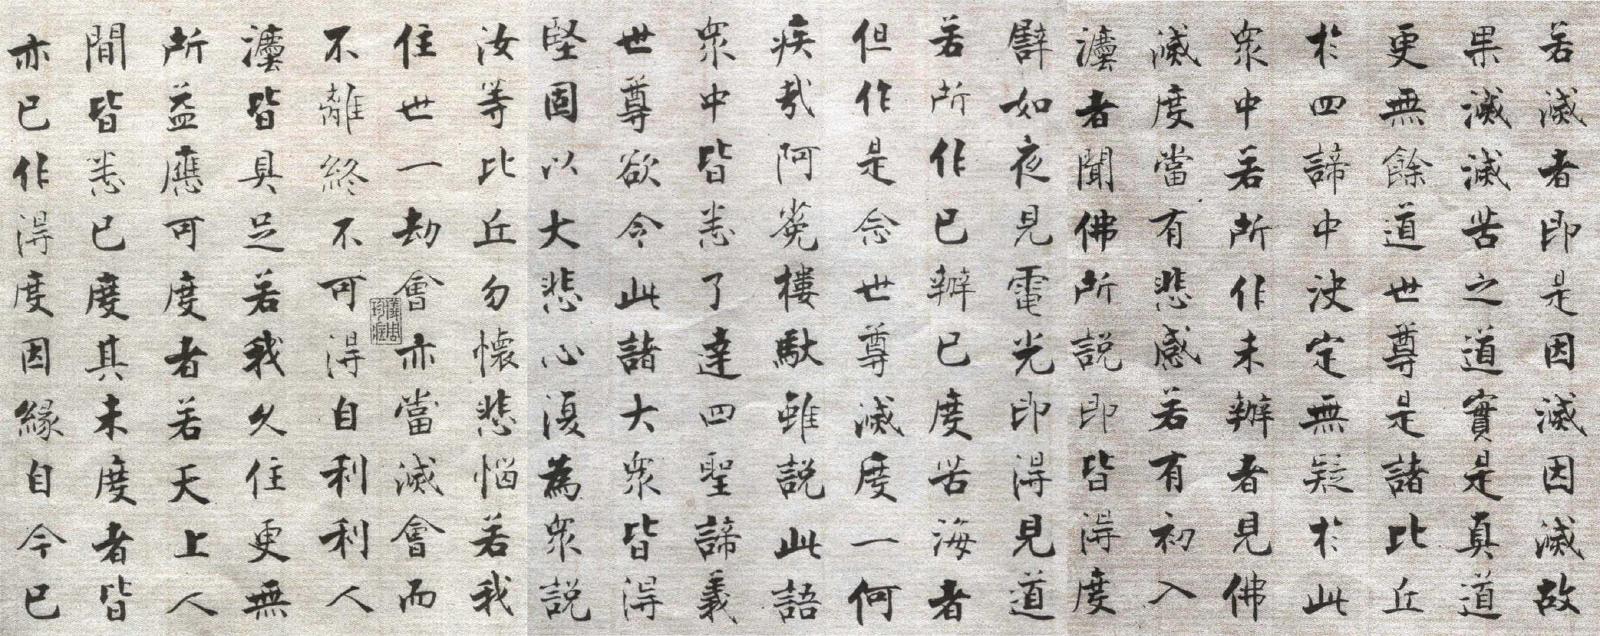 若滅者即是因滅因滅故
果滅滅苦之道實是真道
更無餘道世尊是諸比丘
於四諦中決定無疑於此
衆中若所作未辦者見佛
滅度當有悲感若有初入
灋者聞佛所説即皆得度
譬如夜見電光即得見道
若所作已辦已度苦海者
但作是念世尊滅度一何
疾哉阿㝹樓馱雖説此語
衆中皆悉了達四聖諦義
世尊欲令此諸大衆皆得
堅固以大悲心復為衆説
汝等比丘勿懷悲惱若我
住世一劫會亦當滅會而
不離終不可得自利利人
灋皆具足若我久住更無
所益應可度者若天上人
間皆悉已度其未度者皆
亦已作得度因緣自今已